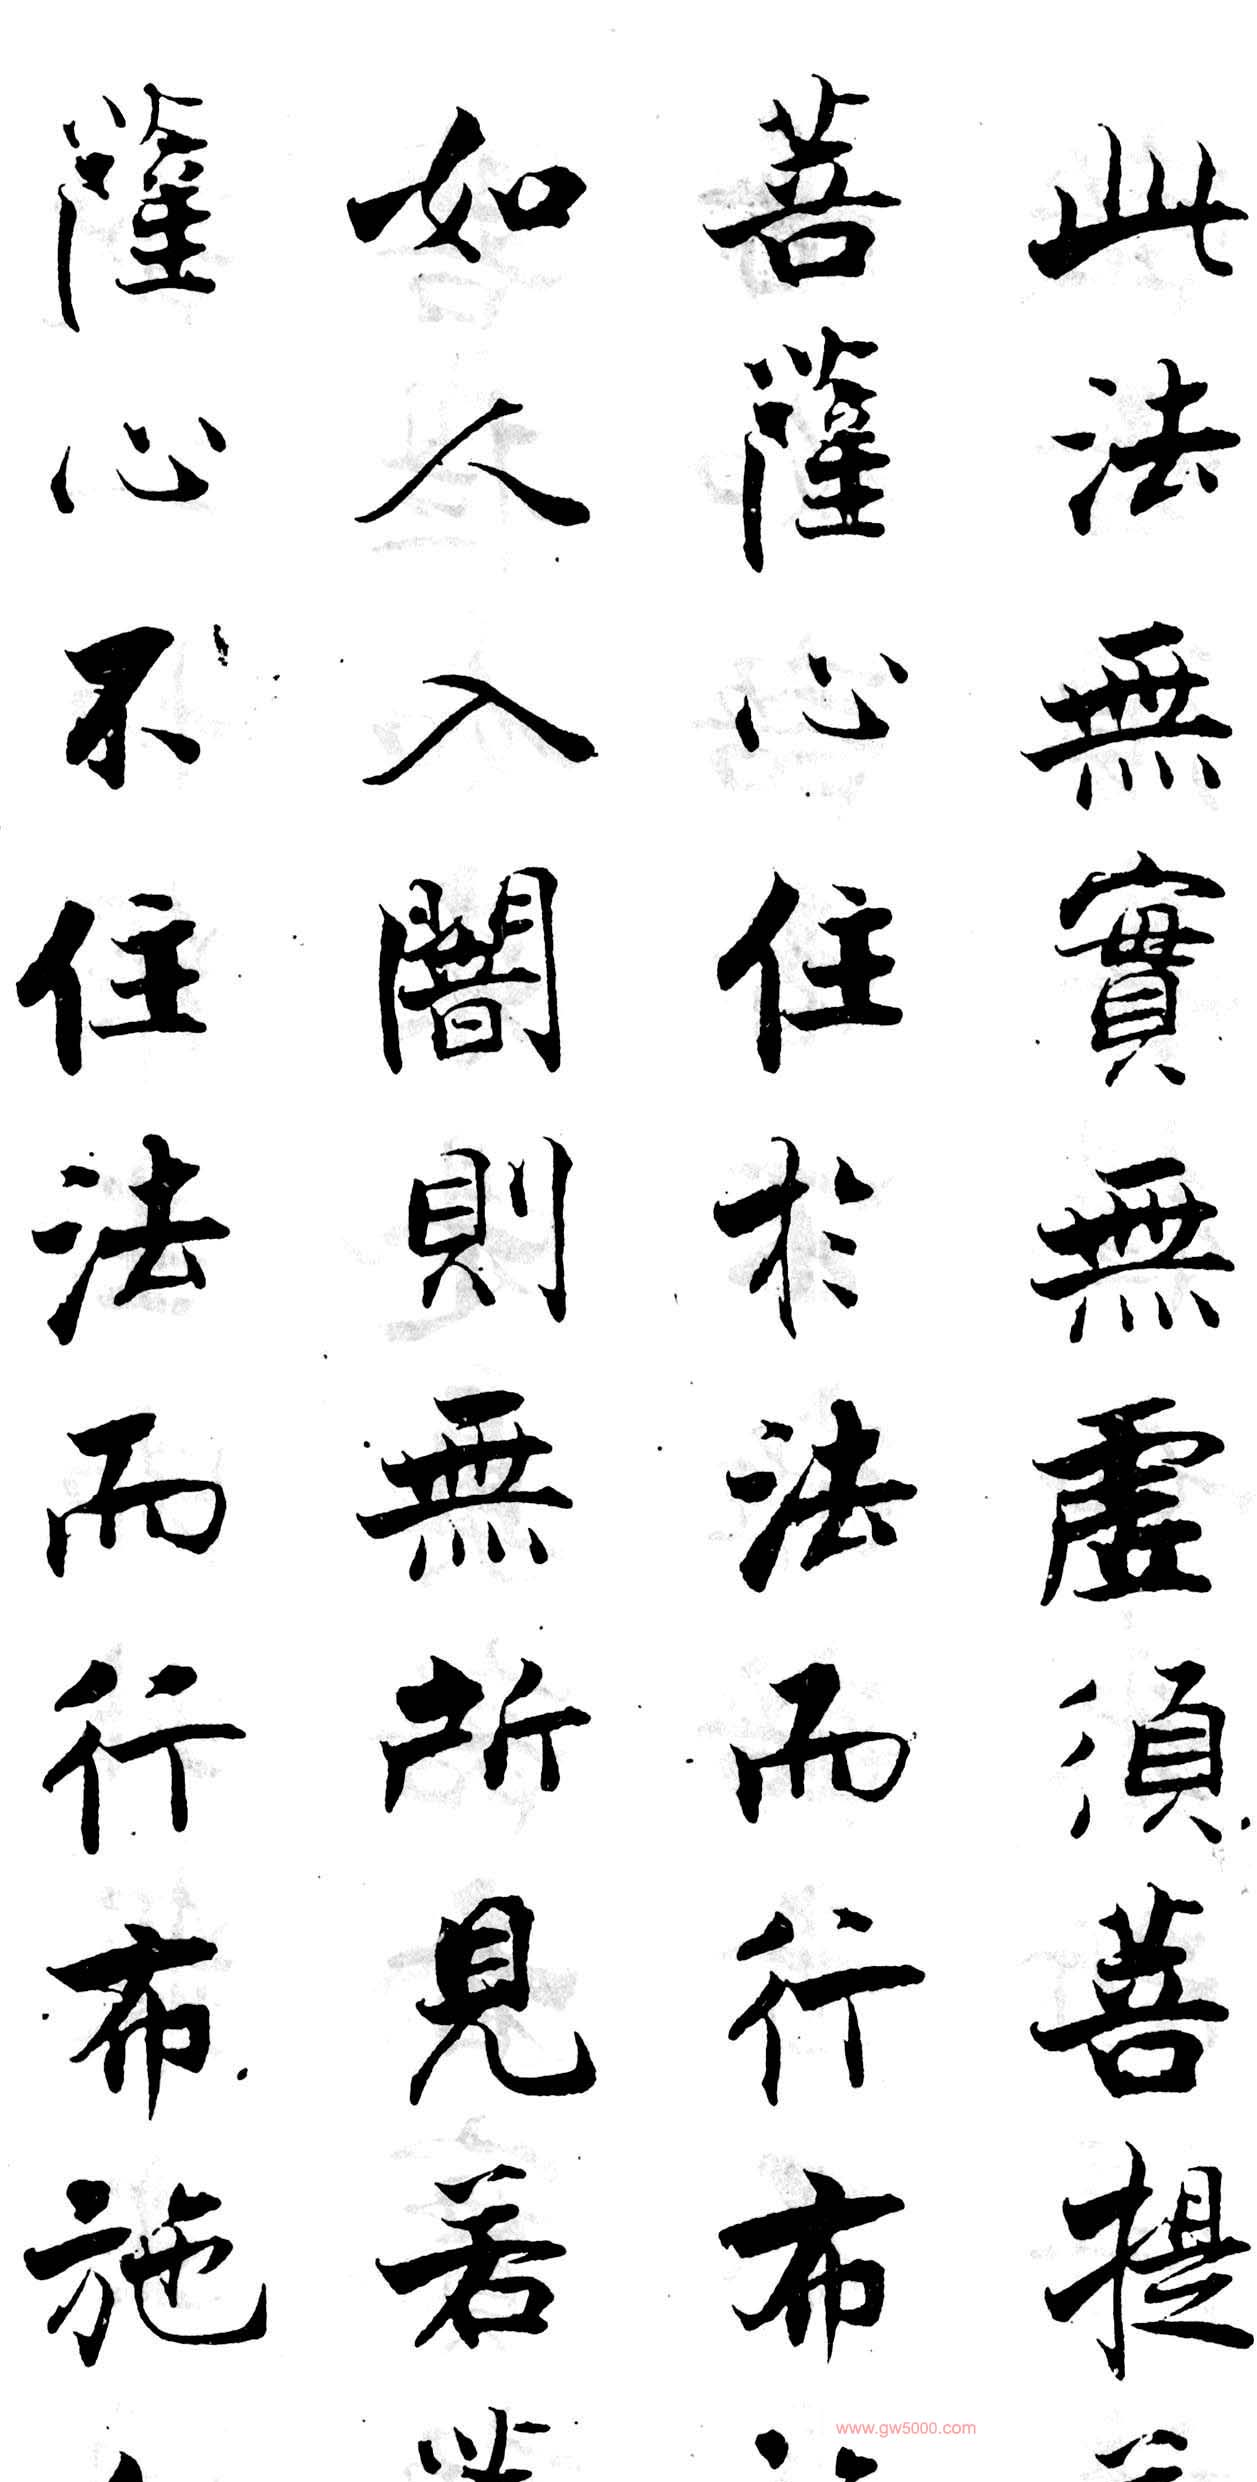 此法無實無虛須菩提
菩薩心住於法而行布
如人入闇則無所見若
薩心不住法而行布施
www.gw5000.com